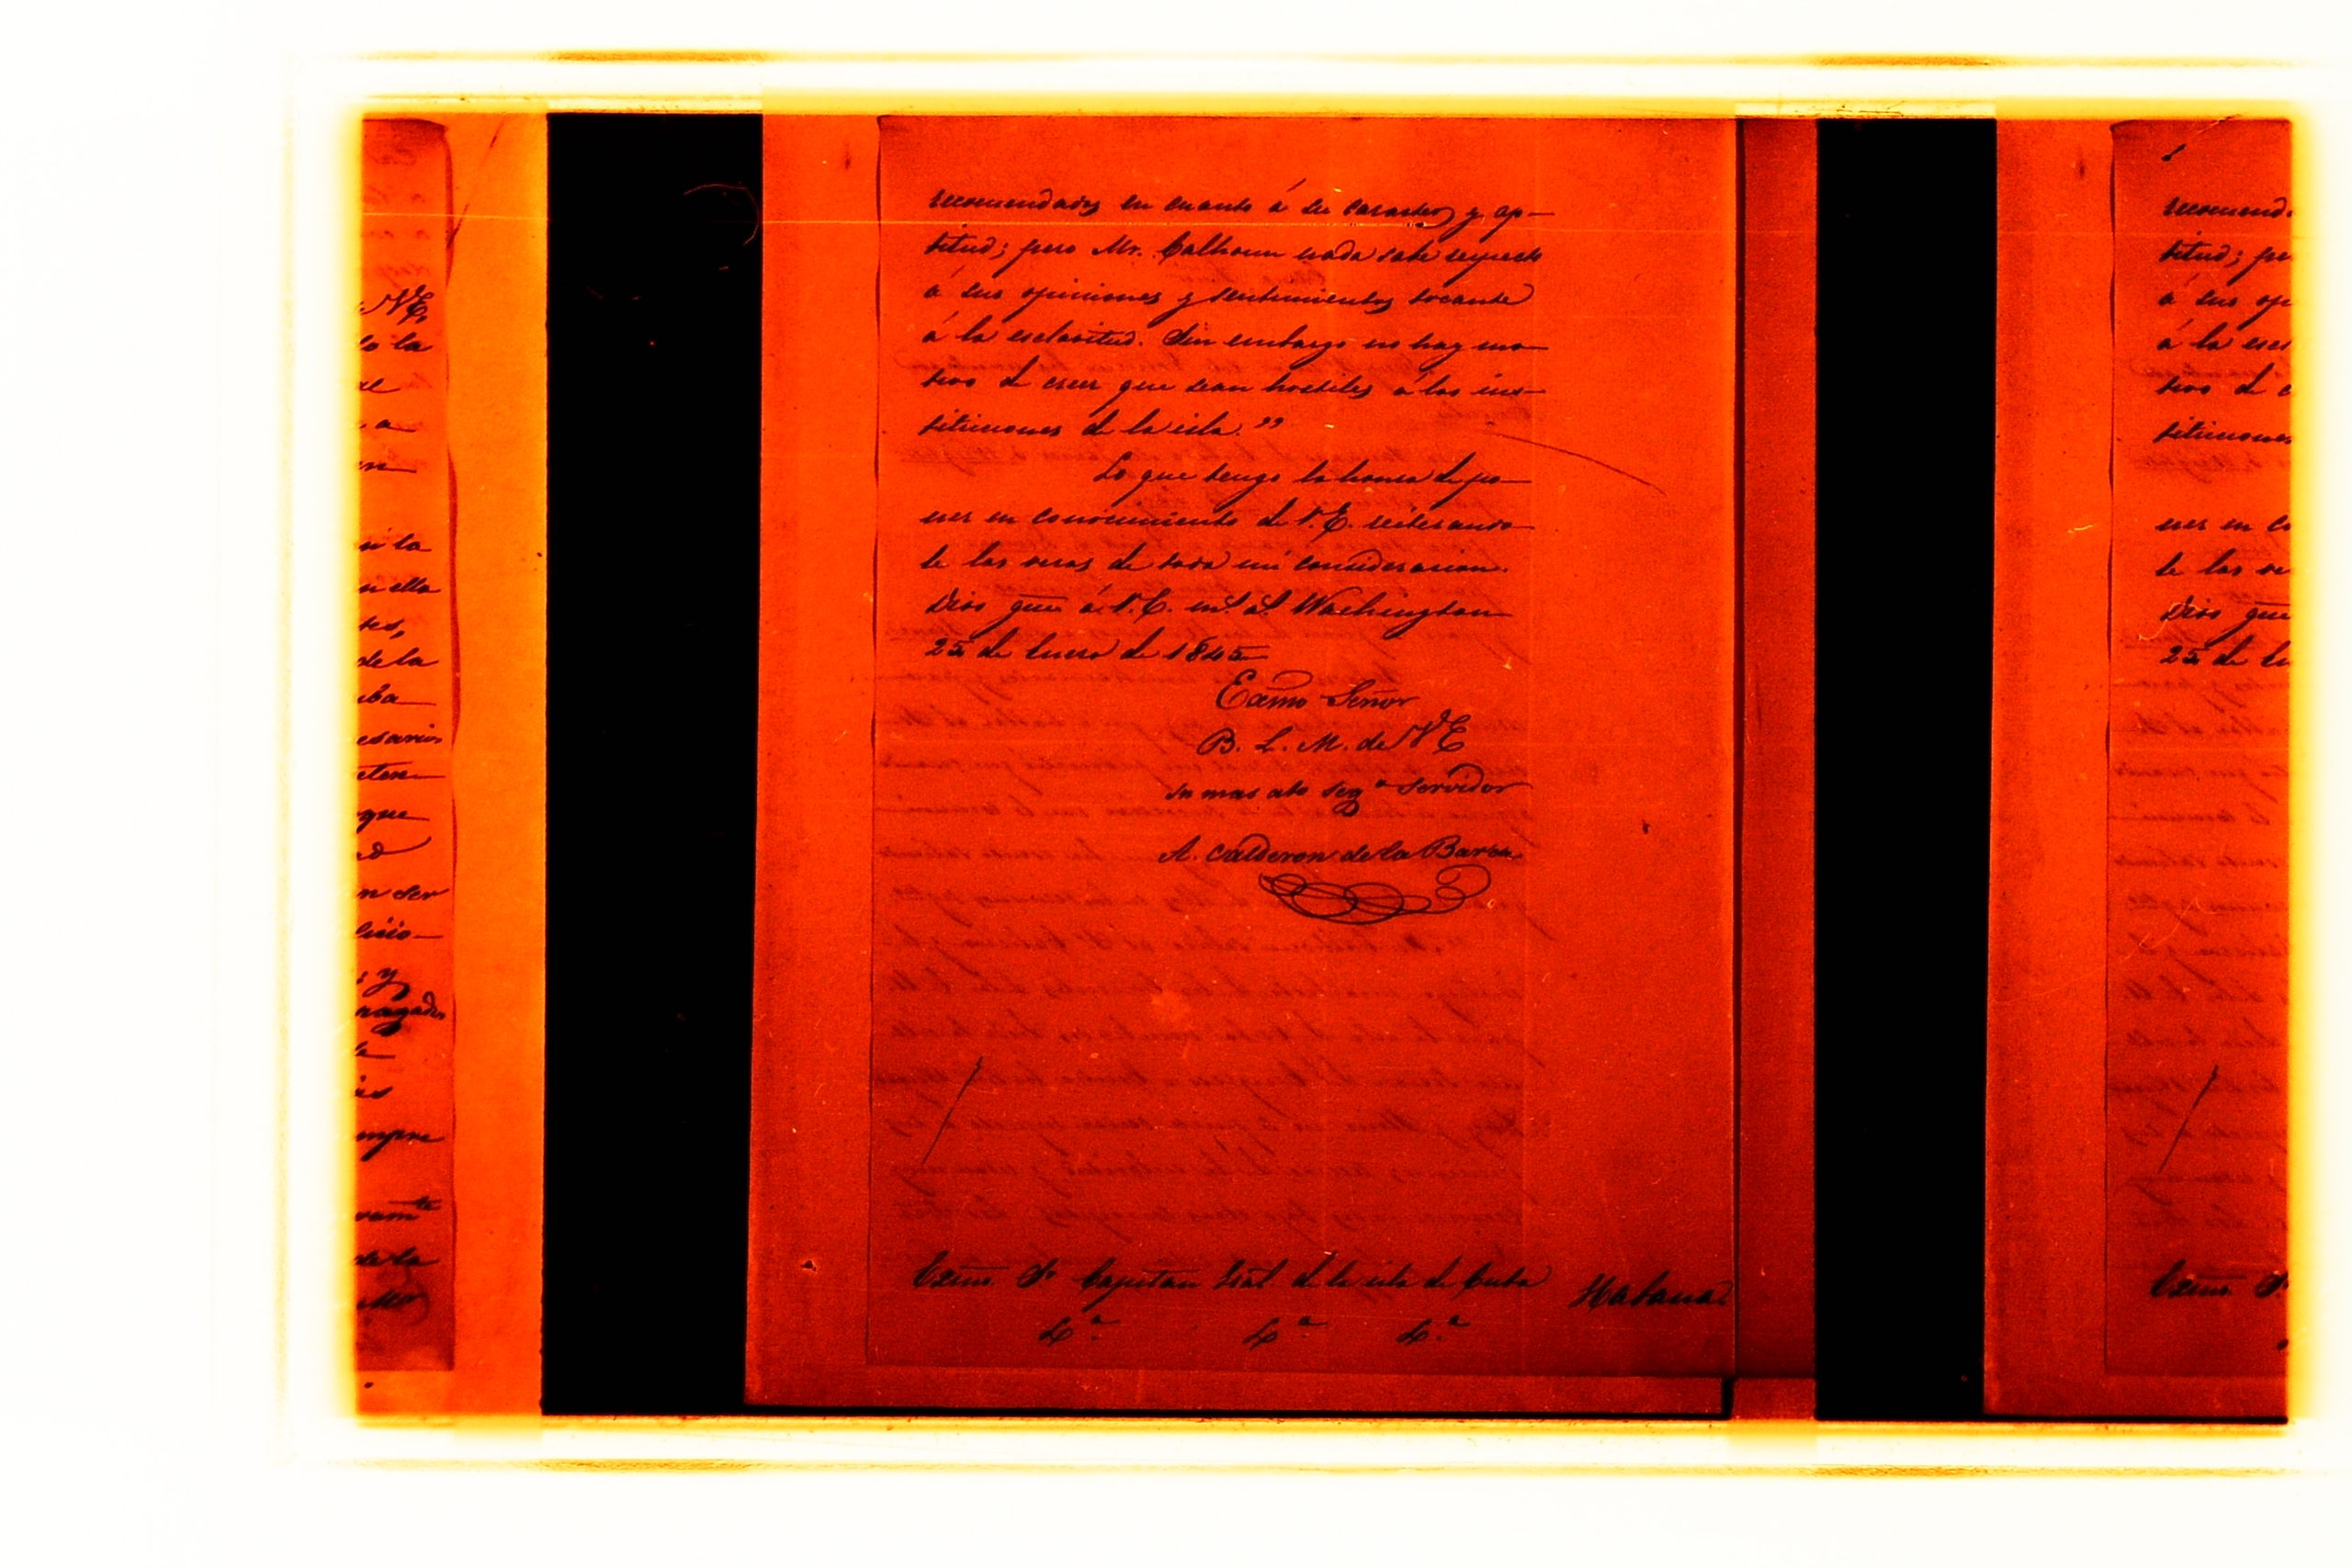 recomendados en cuanto á su caracter y ap-
titud; pero Mr. Calhoun nada sabe respecto
á sus opiniones y sentimientos tocante
á la esclavitud. Sin embargo no hay mo-
tivo de creer que sean hostiles á las ins-
tituciones de la isla."
Lo que tengo la honra de po-
ner en conocimiento de V.E. reiterando-
le las veras de toda mi consideracion.
Dios gue á V.E. ms. as. Washington
25 de Enero de 1845
Exmo Señor
B. L. M. de VE
su mas ato segº servidor
A. Calderon de la Barca
Exmo Sr Capitan Gral. de la isla de Cuba Habana
&ª &ª &ª
VE
lo la
a
en
n la
n ella
tes,
de la
uba
esarios
que
n ser
s y
is
mpre
de la
recomend
titud; pe
á sus op
á la esc
tivo de c
tituciones
ner en co
le las ve
Dios gue
25 de En
Exmo S.